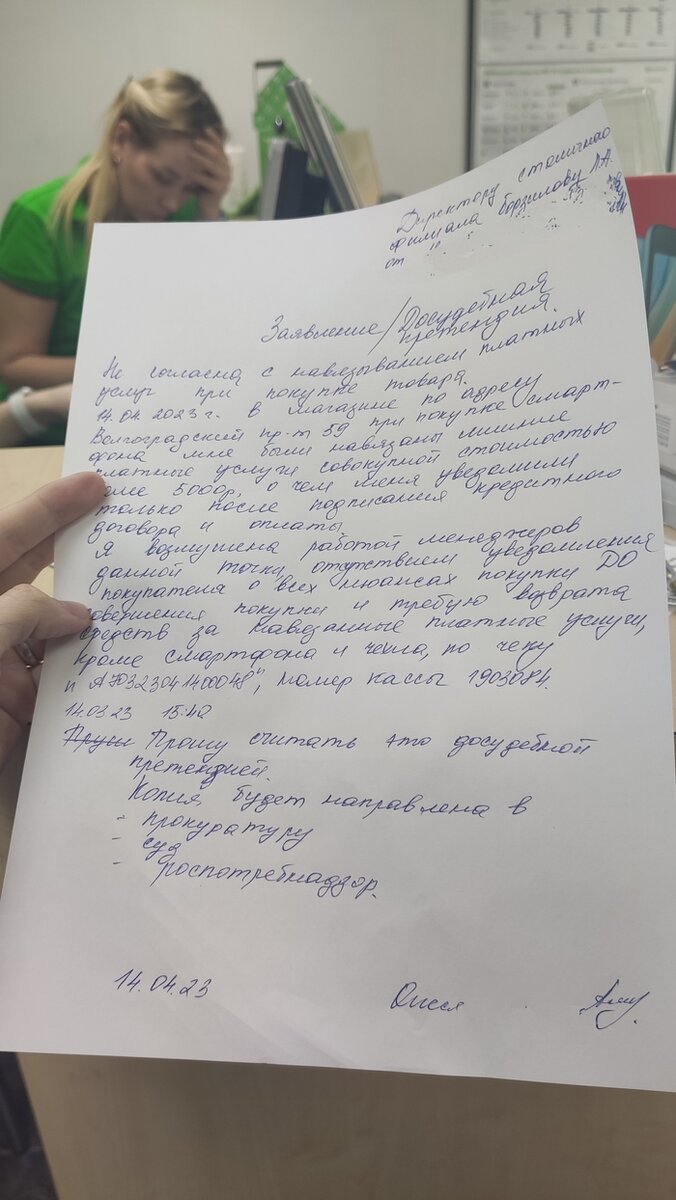 Директору столичнаo
филиала Борзилову А.А.
от
Заявление/Досудебная
претендия.
Не согласна с навязыванием платных
услуг при покупке товара.
14.04.2023г. в магазине по адресу
Волгоградский пр-т 59 при покупке смарт-
фона мне были навязаны лишние
платные услуги совокупной стоимостью
5000р, о чем меня уведомили
только после подписания кредитного
договора и оплаты
Я возмущена работой менеджеров
данной точки, отсутствием уведомления
покупателя о всех нюансах покупки ДО
совершения покупки и требую возврата
средств за навязанные платные услуги,
кроме смартфона и чехла, по чеку
номер кассы 1903084.
14.03.23 15:40
Прошу считать это досудебной
претендией.
Копия будет направлена в
- прокуратуру
- суд
- роспотребнадзор.
14.04.23